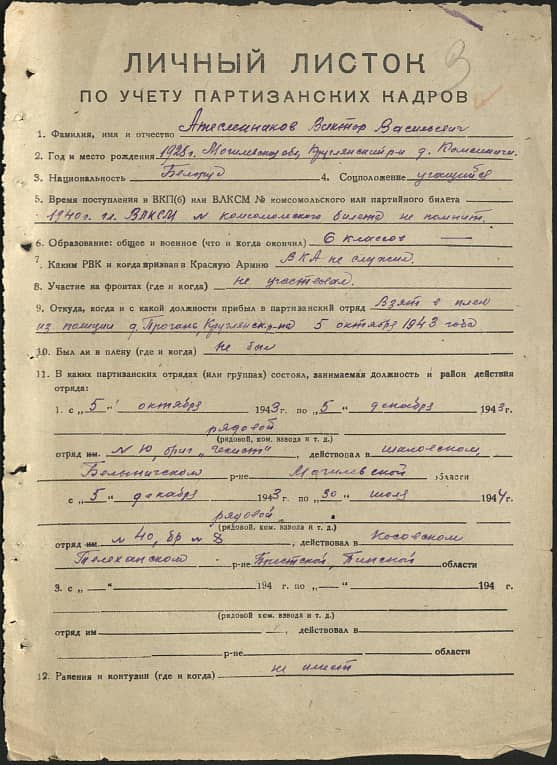 3
ЛИЧНЫЙ ЛИСТОК
ПО УЧЕТУ ПАРТИЗАНСКИХ КАДРОВ
1. Фамилия, имя и отчество Виктор Васильевич
2. Год и место рождения 1928 г. Могилевск обл, Круглянский р-н д.
3. Национальность Белорус 4. Соцположение учащийся
5. Время поступления в ВКП(б) или ВЛКСМ № комсомольского или партийного билета
1940 г. чл. ВЛКСМ № комсомолского билета не помнит.
6. Образование: общее и военное (что и когда окончил) 6 класов —
7. Каким РВК и когда призван в Красную Армию В КА не служил.
8. Участие на фронтах (где и когда) не участвовал.
9. Откуда, когда и с какой должности прибыл в партизанский отряд Взят в плен
из полиции д. Круглянск р-на 5 октября 1943 года
10. Был ли в плену (где и когда) не был
11. В каких партизанских отрядах (или группах) состоял, занимаемая должность и район действия
отряда:
1. с „5“ октября 1943 г. по „5“ декабря 1943 г.
рядовой
(рядовой, ком. взвода и т. д.)
отряд им. № 10, бриг „Чекист“, действовал в шкловском,
Белыничском р-не Могилевской области
с „5“ декабря 1943 г. по „30“ июля 1944 г.
рядовой
(рядовой, ком. взвода и т. д.)
отряд им № 40, бр № 8, действовал в Косовском
Телеханском р-не Брестской, Пинской области
3. с „ “ 194 г. по „ “ 194 г.
(рядовой ком. взвода и т. д.)
отряд им , действовал в
р-не области
12. Ранения и контузии (где и когда) не имеет